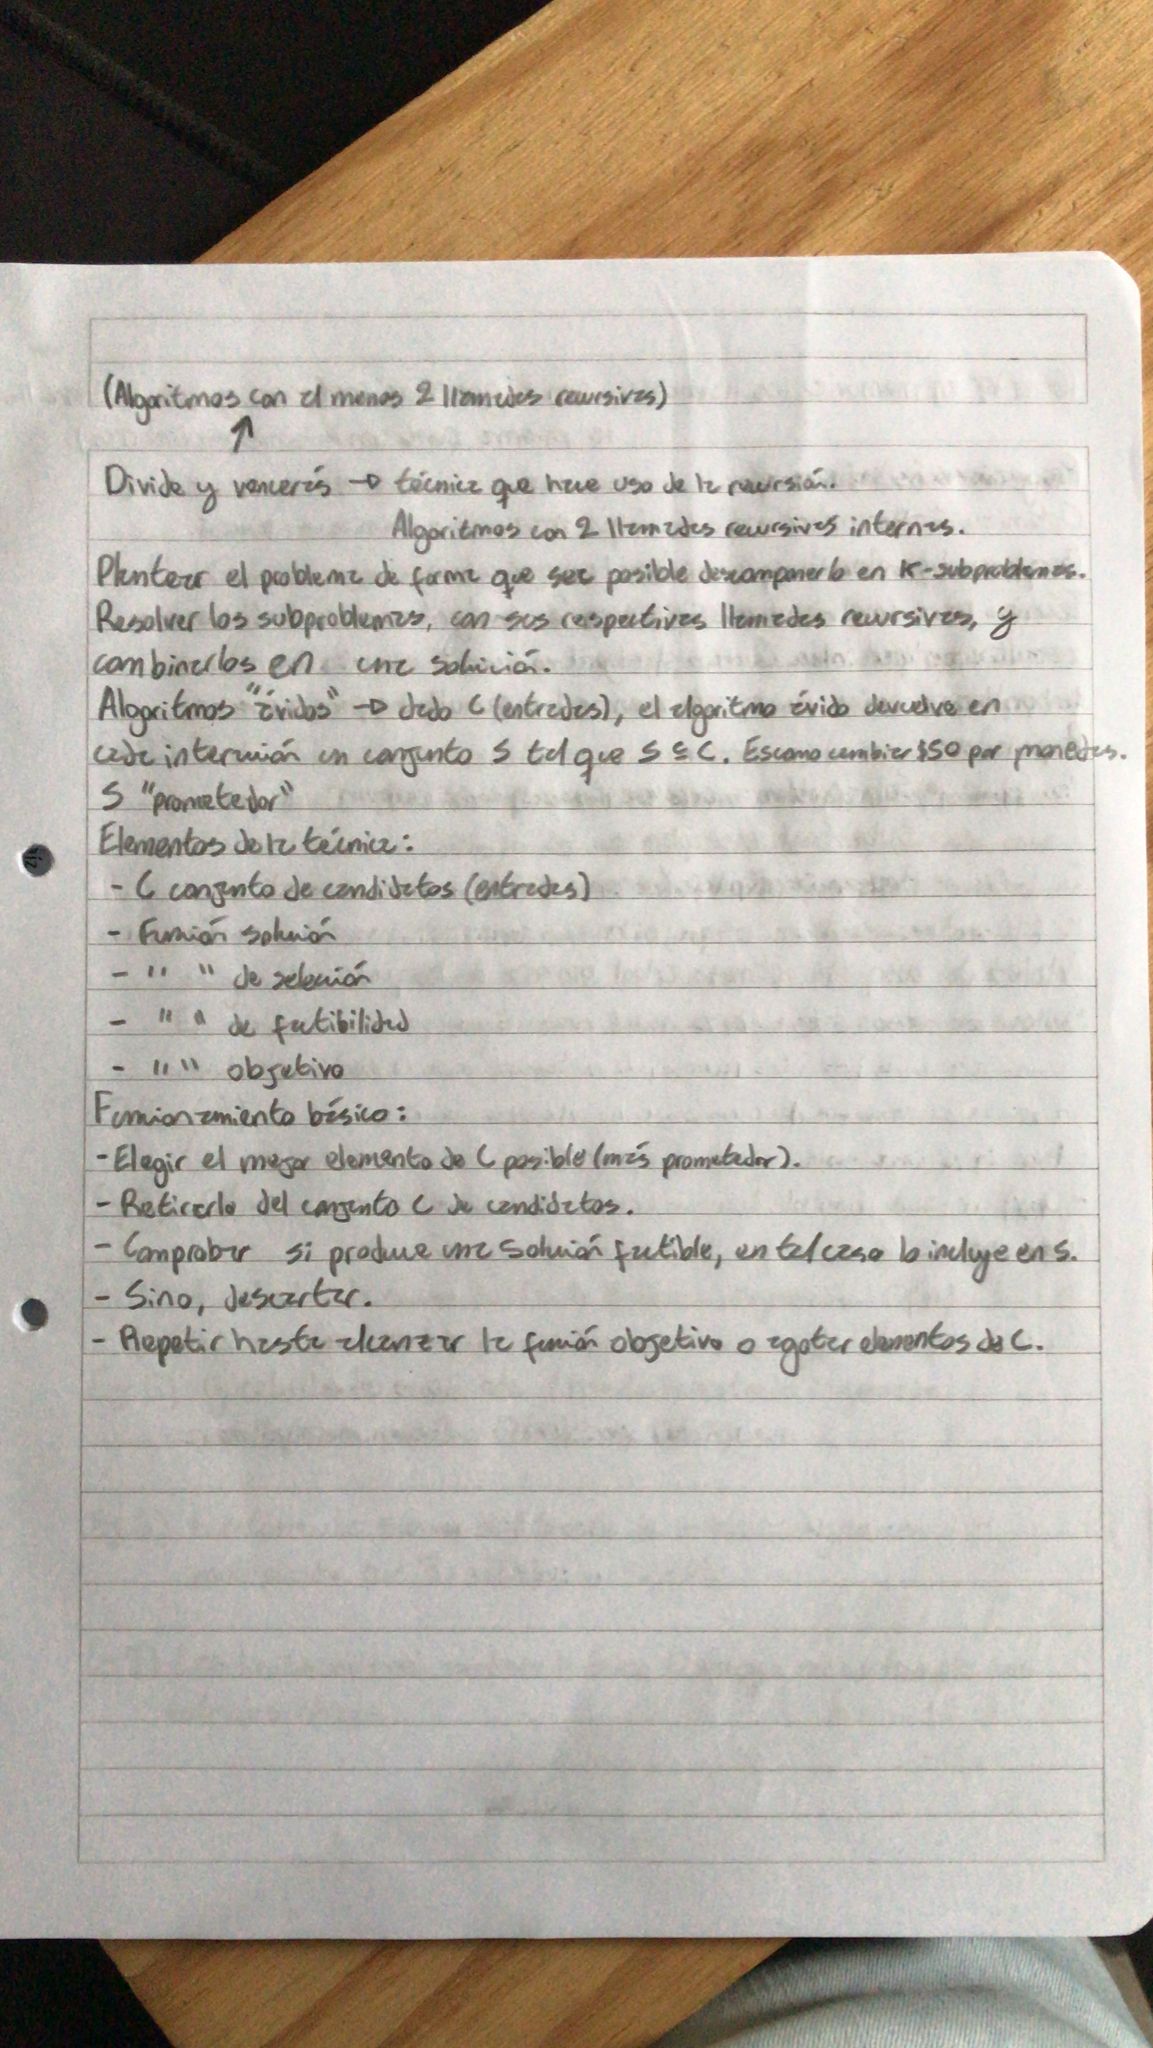 (Algoritmos con al menos 2 llamadas recursivas)
↑
Divide y vencerás → técnica que hace uso de la recursión.
Algoritmos con 2 llamadas recursivas internas.
Plantear el problema de forma que sea posible descomponerlo en K-subproblemas.
Resolver los subproblemas, con sus respectivas llamadas recursivas, y
combinarlos en una solución.
Algoritmos "ávidos" → dado C (entradas), el algoritmo ávido devuelve en
cada un conjunto S tal que S ⊆ C. Es como cambiar $50 por monedas.
S "prometedor"
Elementos de la técnica:
- C conjunto de candidatos (entradas)
- Función solución
- " " de selección
- " " de factibilidad
- " " objetivo
Funcionamiento básico:
- Elegir el mejor elemento de C posible (más prometedor).
- Retirarlo del conjunto C de candidatos.
- Comprobar si produce una solución factible, en tal caso lo incluye en S.
- Sino, descartar.
- Repetir hasta alcanzar la función objetivo o agotar elementos de C.